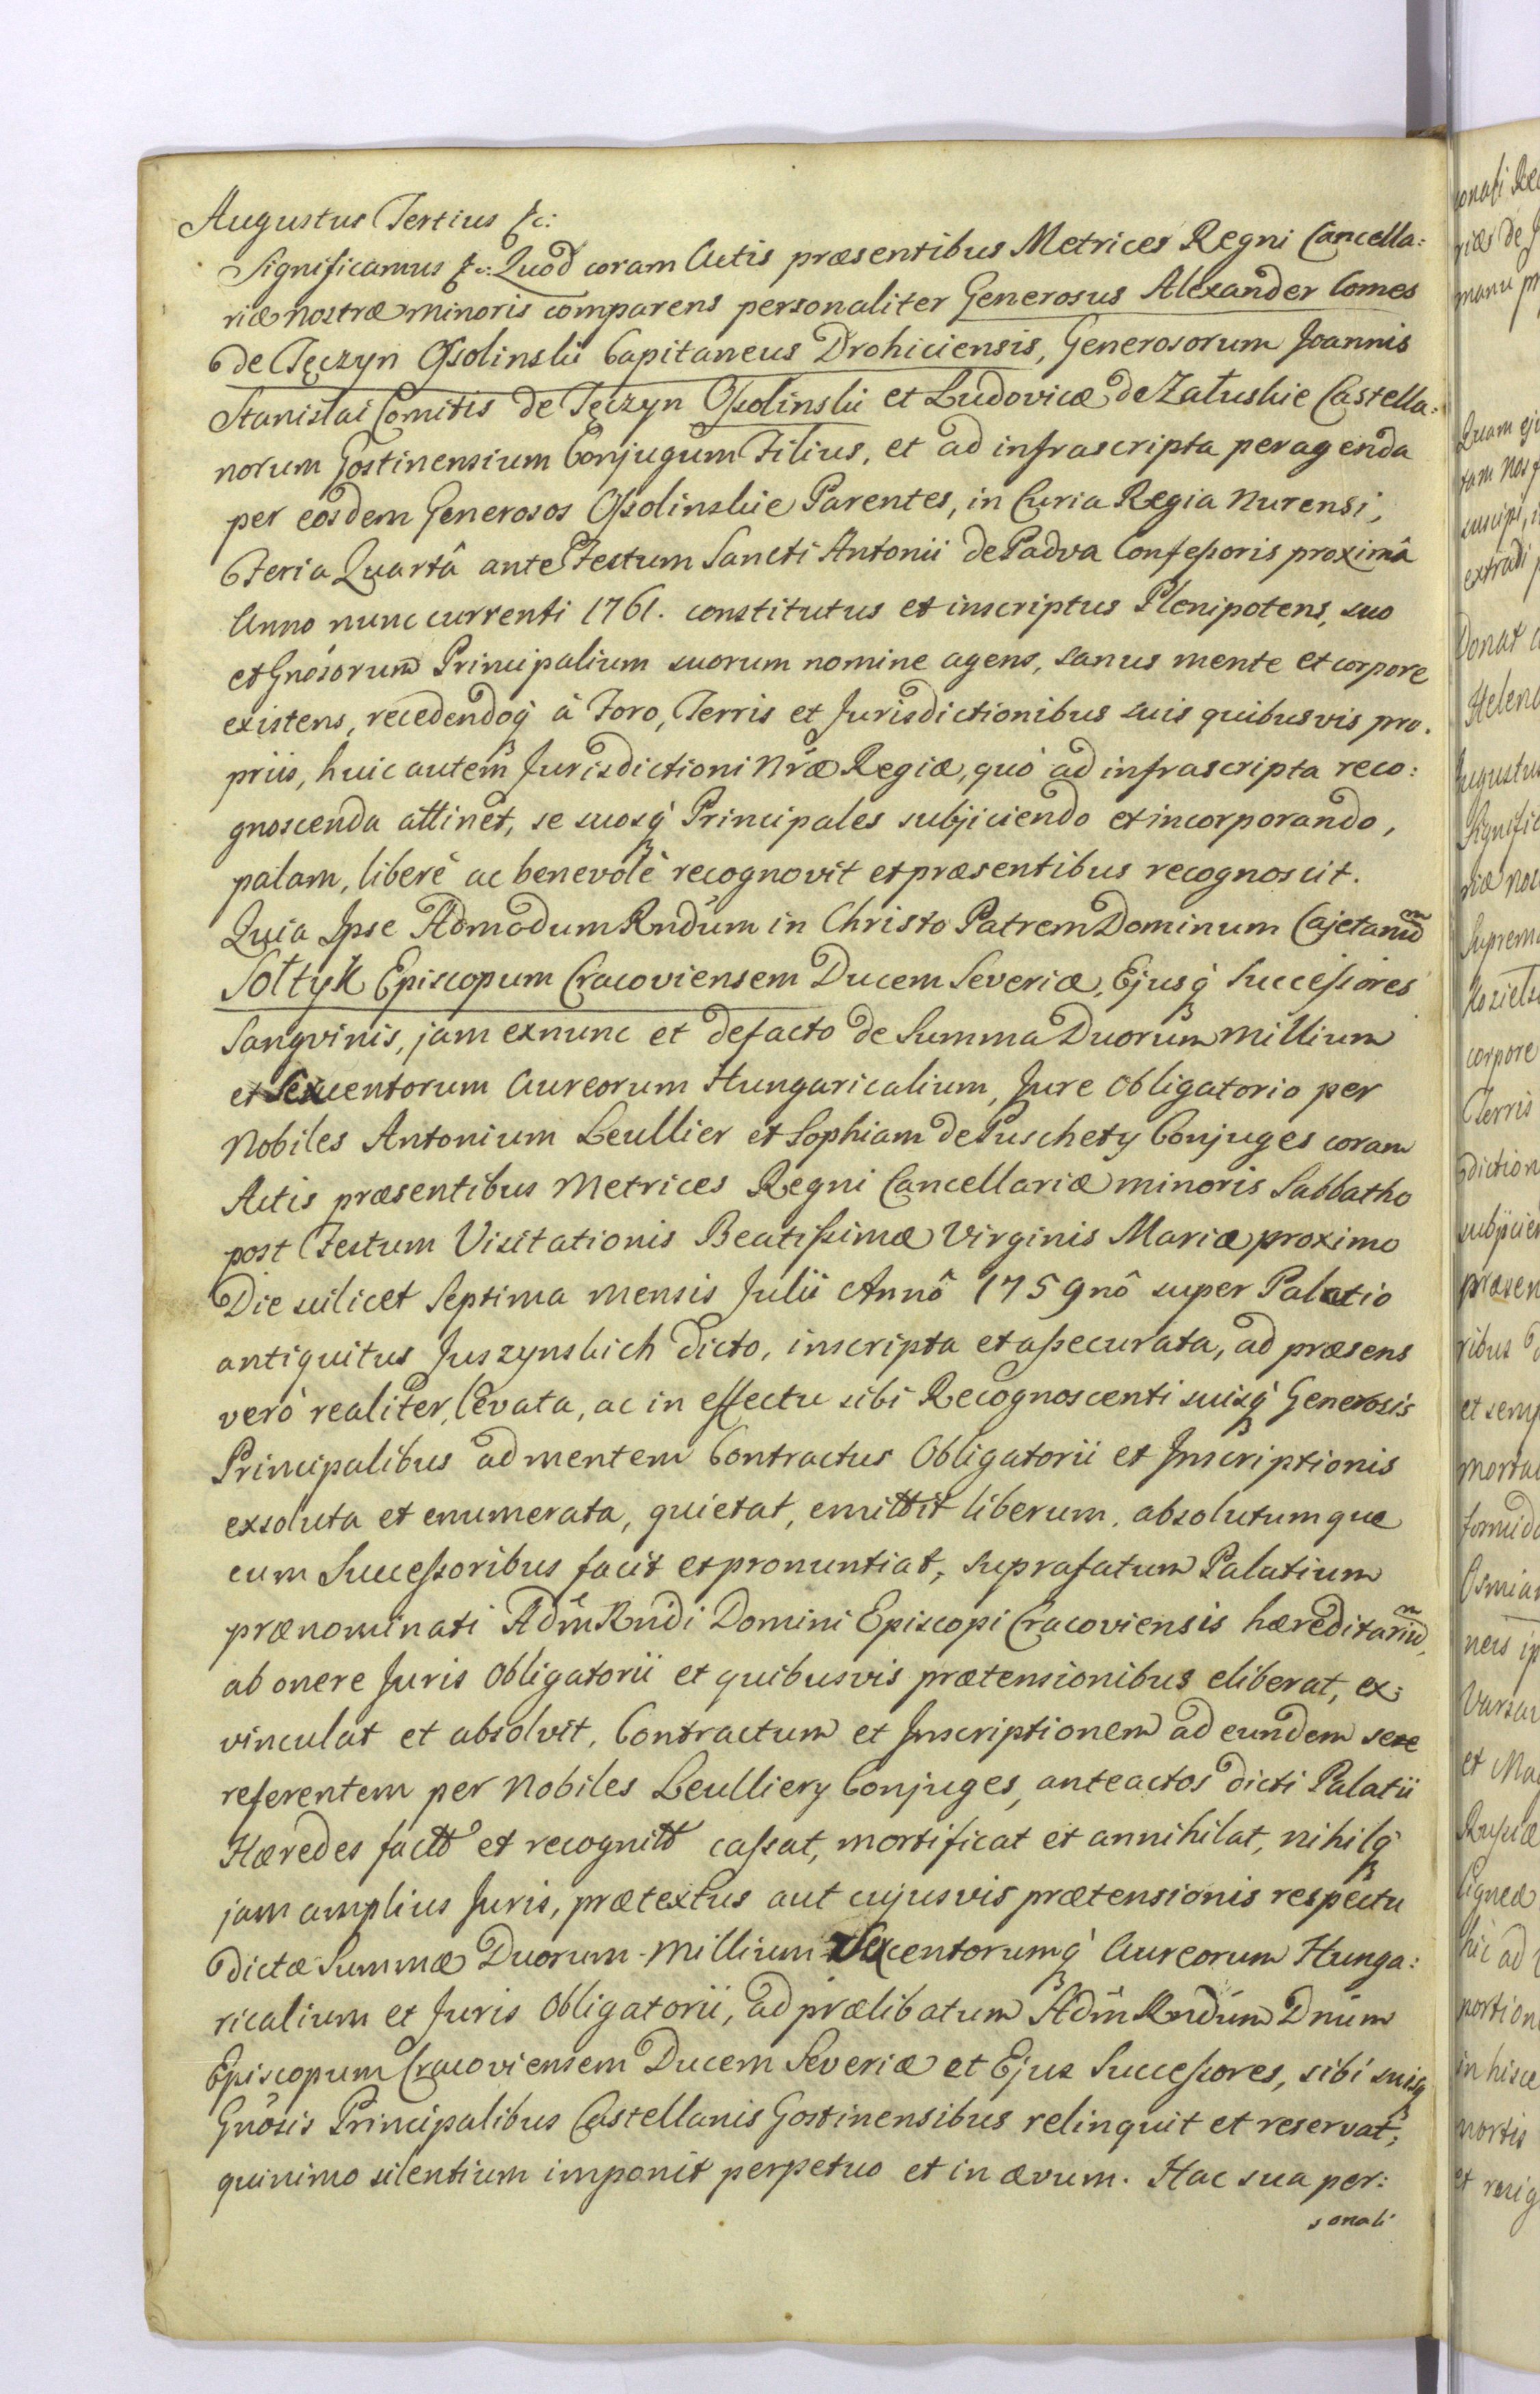 Augustus Tertius &c:
Significamus &c: Quod coram Actis præsentibus Metrices Regni Cancella:
riæ nostræ minoris comparens personaliter Generosus Alexander Comes
de Tęczyn Ossolinski Capitaneus Drohiciensis, Generosorum Joannis
Stanislai Comitis de Tęczyn Ossolinski et Ludovicæ de Załuskie Castella:
norum Gostinensium Conjugum Filius, et ad infrascripta peragenda
per eosdem Generosos Ossolinskie Parentes, in Curia Regia Nurensi,
Feria Quartâ ante Festum Sancti Antonii de Padva Confessoris proximâ
Anno nunc currenti 1761. constitutus et inscriptus Plenipotens, suo
et Gnosorum Principalium suorum nomine agens, sanus mente et corpore
existens, recedendoq́ à Foro, Terris et Jurisdictionibus suis quibusvis pro.
priis, huic autem Jurisdictioni Nræ Regiæ, quò ad infrascripta reco:
gnoscenda attinet, se suosq́ Principales subjiciendo et incorporando,
palam, liberè ac benevolè recognovit et præsentibus recognoscit.
Quia Ipse Admodum Rndum in Christo Patrem Dominum Cajetanum
Sołtyk Episcopum Cracoviensem Ducem Severiæ, Ejusq́ Successores
Sangvinis, jam exnunc et defacto de Summa Duorum Millium
et Sexcentorum Aureorum Hungaricalium, Jure Obligatorio per
Nobiles Antonium Leullier et Sophiam de Puschety Conjuges coram
Actis præsentibus Metrices Regni Cancellariæ minoris Sabbatho
post Festum Visitationis Beatissimæ Virginis Mariæ proximo
Die scilicet Septima mensis Julii Annô 1759nô super Palatio
antiquitus Juszynskich dicto, inscripta et assecurata, ad præsens
verò realiter, levata, ac in effectu sibi Recognoscenti suisq́ Generosis
Principalibus ad mentem Contractus Obligatorii et Inscriptionis
exsoluta et enumerata, quietat, emittit liberum, absolutumque
cum Successoribus facit et pronuntiat, suprafatum Palatium
prænominati Adm̂ Rndi Domini Episcopi Cracoviensis hæreditarium,
ab onere Juris Obligatorii et quibusvis prætensionibus eliberat, ex:
vinculat et absolvit, Contractum et Inscriptionem ad eundem sese
referentem per Nobiles Leulliery Conjuges, anteactos dicti Palatii
Hæredes factt et recognitt cassat, mortificat et annihilat, nihilq́
jam amplius Juris, prætextus aut cujusvis prætensionis respectu
dictæ Summæ Duorum Millium Sexcentorumq́ Aureorum Hunga:
ricalium et Juris Obligatorii, ad prælibatum Adm̂ Rndum Dnum
Episcopum Cracoviensem Ducem Severiæ et Ejus Successores, sibi suisq́
Gnosis Principalibus Castellanis Gostinensibus relinquit et reservat;
quinimo silentium imponit perpetuo et in ævum. Hac sua per:
sonali